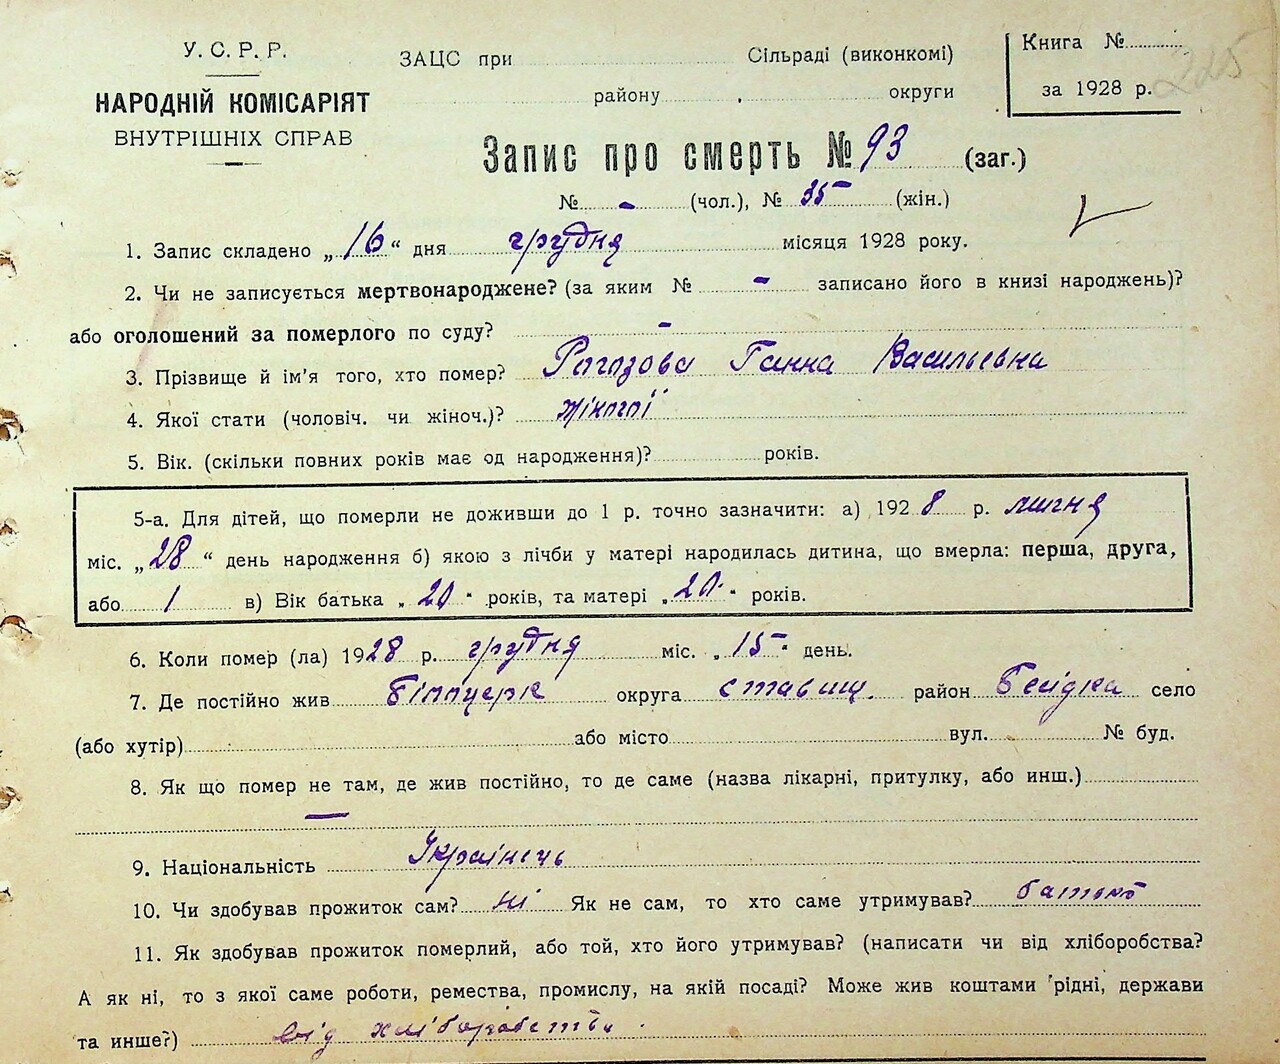 225
У. С. Р. Р.
НАРОДНІЙ КОМІСАРІЯТ
ВНУТРІШНІХ СПРАВ
ЗАЦС при Сільраді (виконкомі)
району округи
Книга №
за 1928 р.
Запис про смерть № 93 (заг.)
№ - (чол.), № 35 (жін.)
1. Запис складено „16“ дня грудня місяця 1928 року.
2. Чи не записується мертвонароджене? (за яким № - записано його в книзі народжень)?
або оголошений за померлого по суду? -
3. Прізвище й ім'я того, хто помер? Рогозова Ганна Васильевна
4. Якої стати (чоловіч. чи жіноч.)? жіночої
5. Вік. (скільки повних років має од народження)? років.
5-а. Для дітей, що померли не доживши до 1 р. точно зазначити: а) 1928 р. липня
міс. „28“ день народження б) якою з лічби у матері народилась дитина, що вмерла: перша, друга,
або 1 в) Вік батька „20“ років, та матері „20“ років.
6. Коли помер (ла) 1928 р. грудня міс. „15“ день.
7. Де постійно жив Білоцерк округа ставищ. район Бесідка село
(або хутір) або місто вул. № буд.
8. Як що помер не там, де жив постійно, то де саме (назва лікарні, притулку, або инш.)
—
9. Національність Українець
10. Чи здобував прожиток сам? ні Як не сам, то хто саме утримував? батько
11. Як здобував прожиток померлий, або той, хто його утримував? (написати чи від хліборобства?
А як ні, то з якої саме роботи, ремества, промислу, на якій посаді? Може жив коштами рідні, держави
та инше?) від хліборобства.